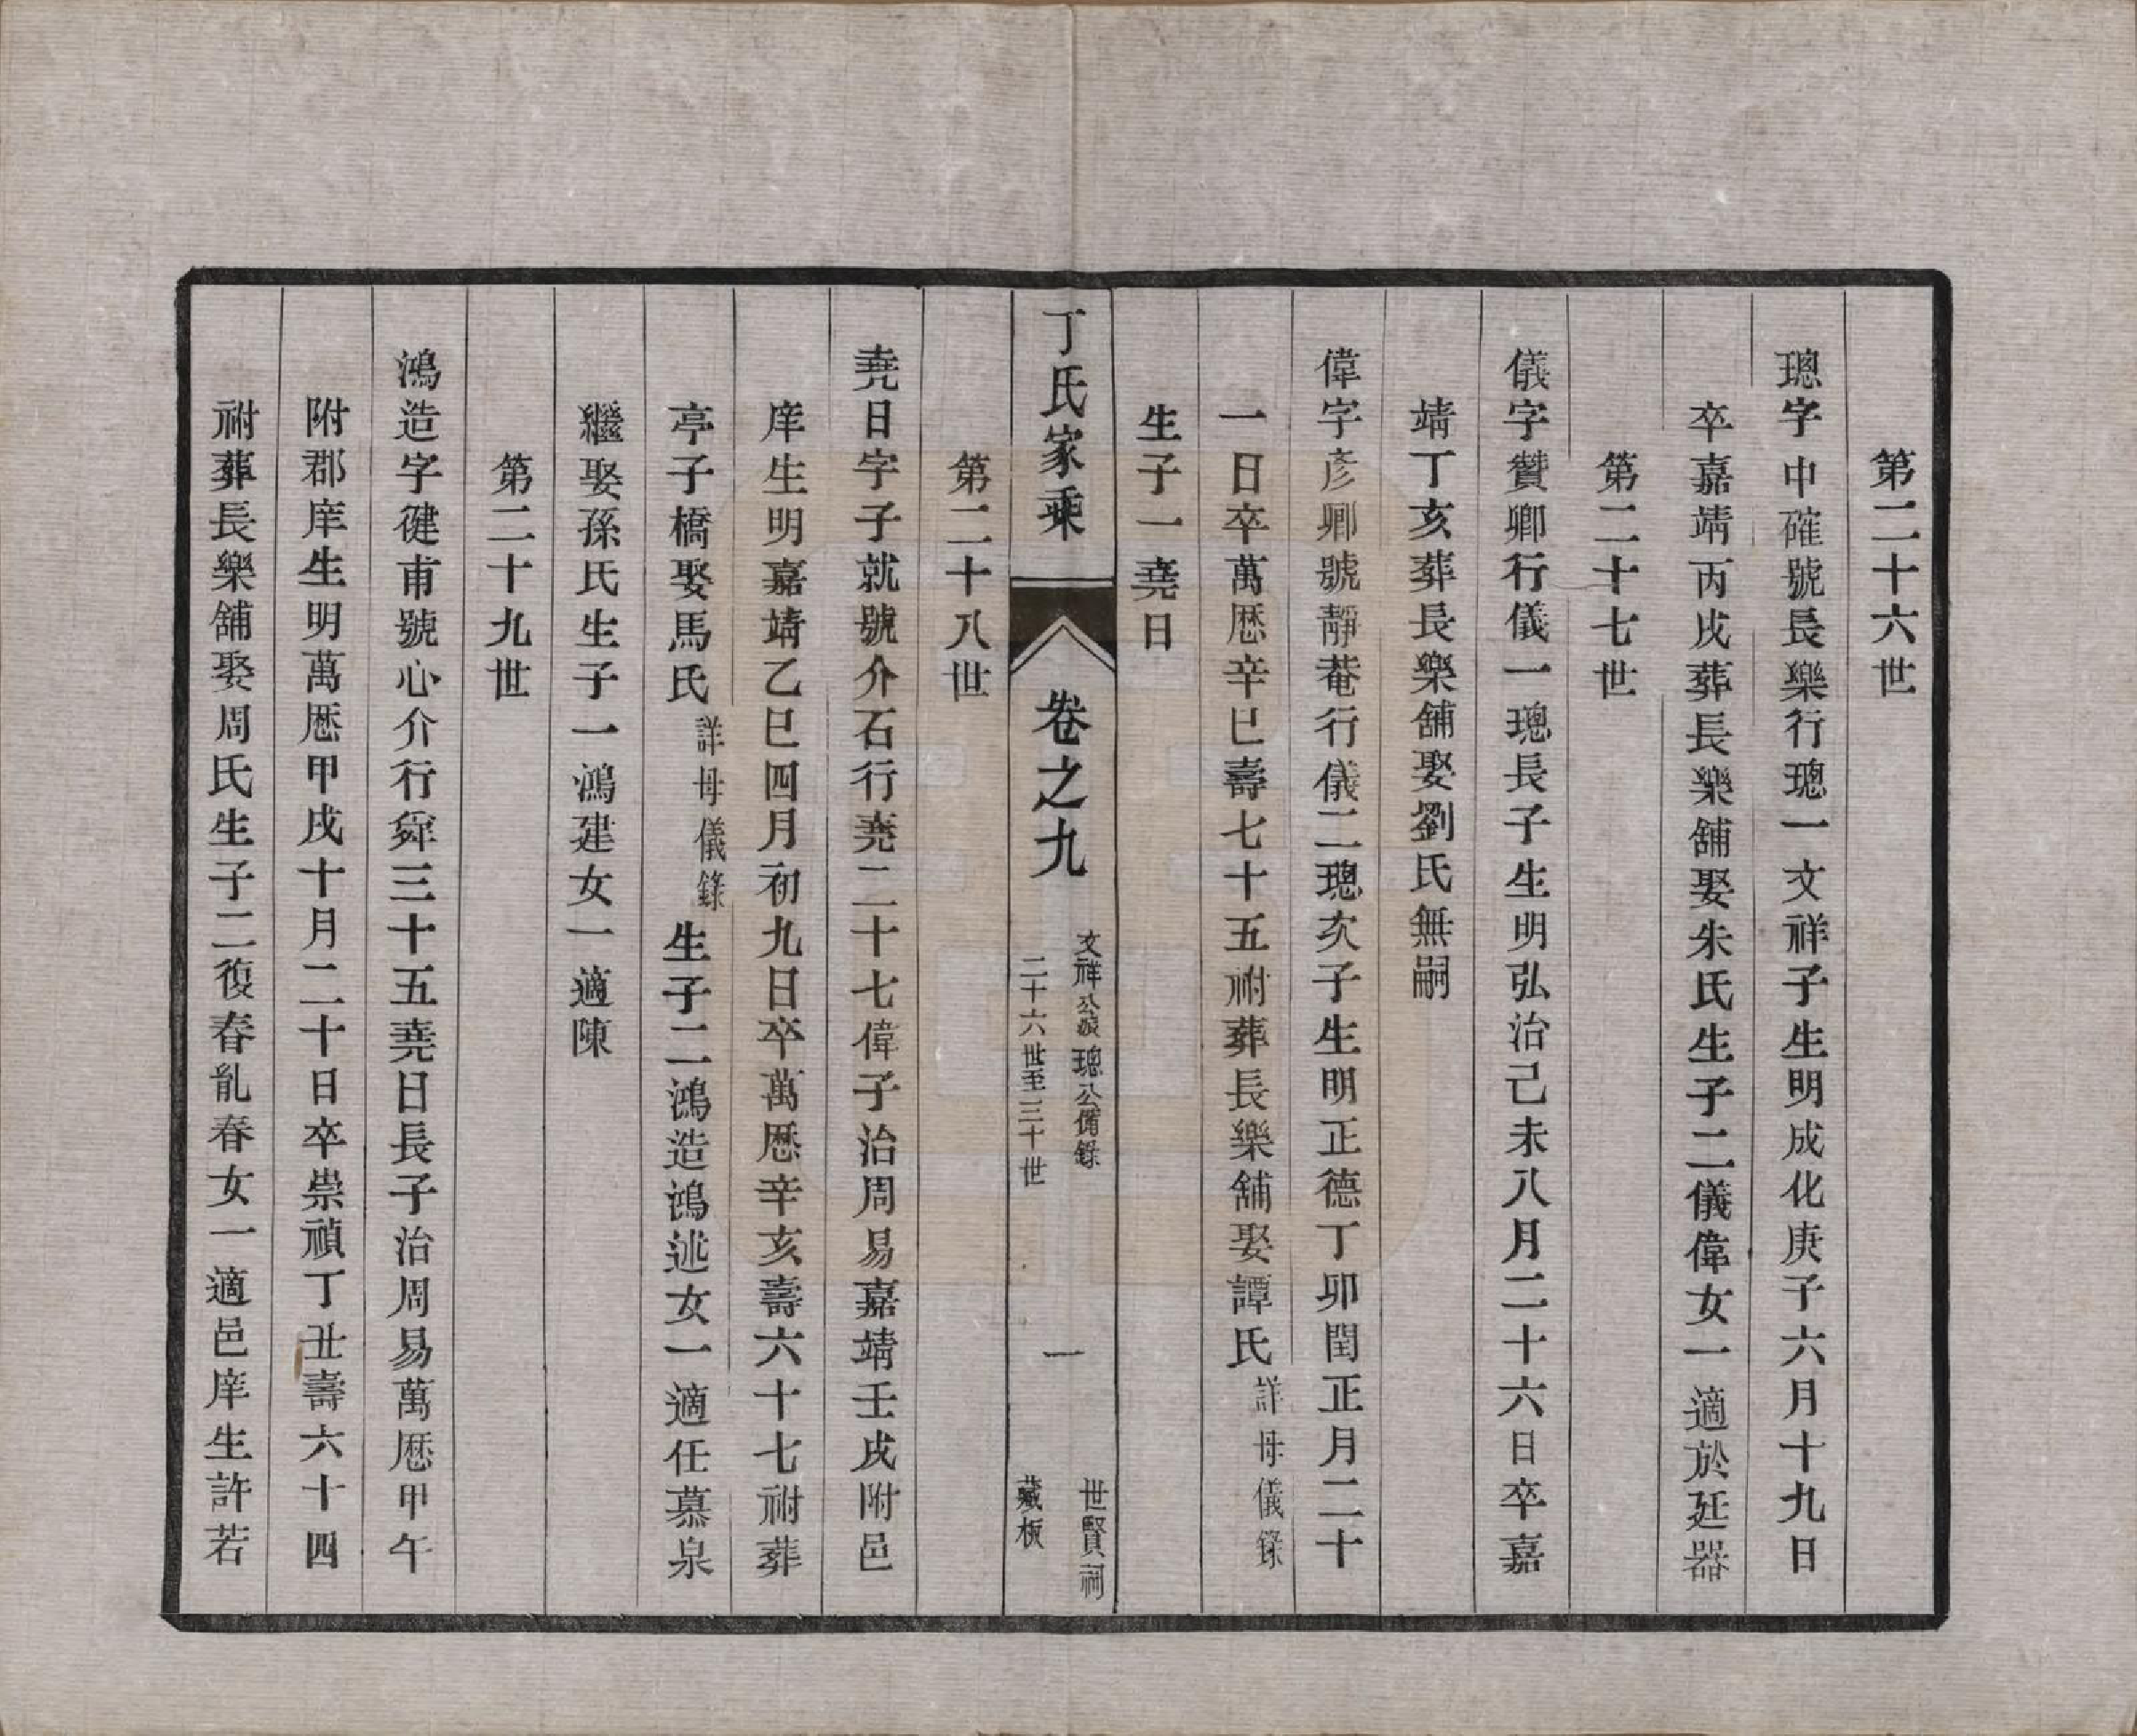 第二十六世
璁字中確號長樂行璁一文祥子生明成化庚子六月十九日
卒嘉靖丙戌葬長樂舖娶朱氏生子二儀偉女一適於延器
第二十七世
儀字贊卿行儀一璁長子生明弘治己未八月二十六日卒嘉
靖丁亥葬長樂舖娶劉氏無嗣
偉字彥卿號靜菴行儀二璁次子生明正德丁卯閏正月二十
一日卒萬厯辛巳壽七十五祔葬長樂舖娶譚氏詳母儀錄
生子一堯日
丁氏家乘
卷之九
文祥公裔璁公備錄
二十六世至三十世
一
世賢祠
藏板
第二十八世
堯日字子就號介石行堯二十七偉子治周易嘉靖壬戌附邑
庠生明嘉靖乙巳四月初九日卒萬厯辛亥壽六十七祔葬
亭子橋娶馬氏詳母儀錄生子二鴻造鴻述女一適任慕泉
繼娶孫氏生子一鴻建女一適陳
第二十九世
鴻造字健甫號心介行舜三十五堯日長子治周易萬厯甲午
附郡庠生明萬厯甲戌十月二十日卒崇禎丁丑壽六十四
祔葬長樂舖娶周氏生子二復春胤春女一適邑庠生許若